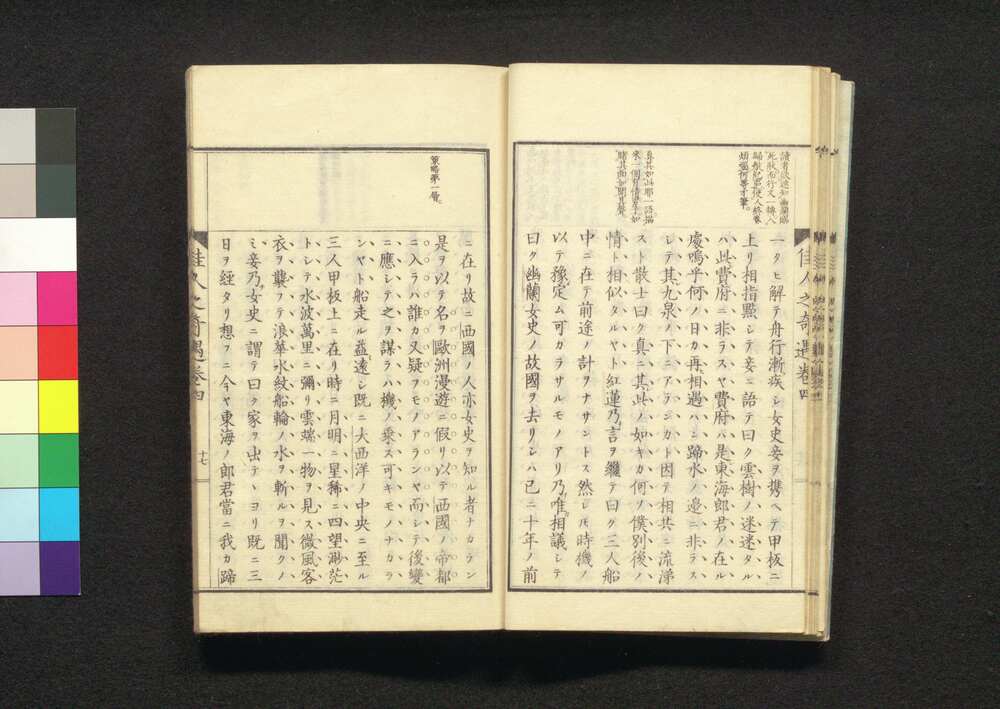 讀者欲速知幽蘭臨
死狀而行文一轉入
情ト相似タルヤト紅蓮乃言ヲ繼テ曰ク三人船
一タヒ解テ舟行漸疾シ女史妾ヲ携ヘテ甲板ニ
上リ相指點シテ妾ニ語テ曰ク雲樹ノ迷迷タル
ハ此費府ニ非ラスヤ費府ハ是東海郎君ノ在ル
處嗚乎何ノ日カ再相遇ハン蹄水ノ邉ニ非ラス
シテ其九泉ノ下ニアランカト因テ相共ニ流涕
スト散士曰ク真ニ其此ノ如キカ何ノ僕別後ノ
中ニ在テ前途ノ計ヲナサントス然レ𪜈時機ノ
以テ豫定ム可カラサルモノアリ乃唯相議シテ
曰ク幽蘭女史ノ故國ヲ去リシハ已ニ十年ノ前
佳人之奇遇卷四
策略第一層
ニ在リ故ニ西國ノ人亦女史ヲ知ル者ナカラン
是ヲ以テ名ヲ歐洲漫遊ニ假リ以テ西國ノ帝都
ニ入ラハ誰カ又疑フモノアランヤ而シテ後變
ニ應シテ之ヲ謀ラハ機ノ乘ス可キモノナカラ
ンヤト船走ル益遠シ既ニ大西洋ノ中央ニ至ル
三人甲板上ニ在リ時ニ月明ニ星稀ニ四望渺茫
トシテ水波萬里ニ彌リ雲端一物ヲ見ス微風客
衣ヲ襲フテ浪華水紋船輪ノ水ヲ斬ルヲ聞クノ
ミ妾乃女史ニ謂テ曰ク家ヲ出テヽヨリ既ニ三
日ヲ經タリ想フニ今ヤ東海ノ郎君當ニ我カ蹄
佳人之奇遇卷四
十七